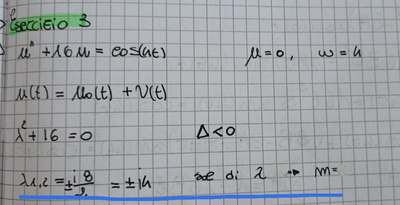 Esercizio 3
u'' + 16u = cos(4t) μ=0, ω=4
u(t) = u₀(t) + v(t)
λ² + 16 = 0 Δ<0
λ₁,₂ = ± i 8/2 = ± i4 di λ → m=